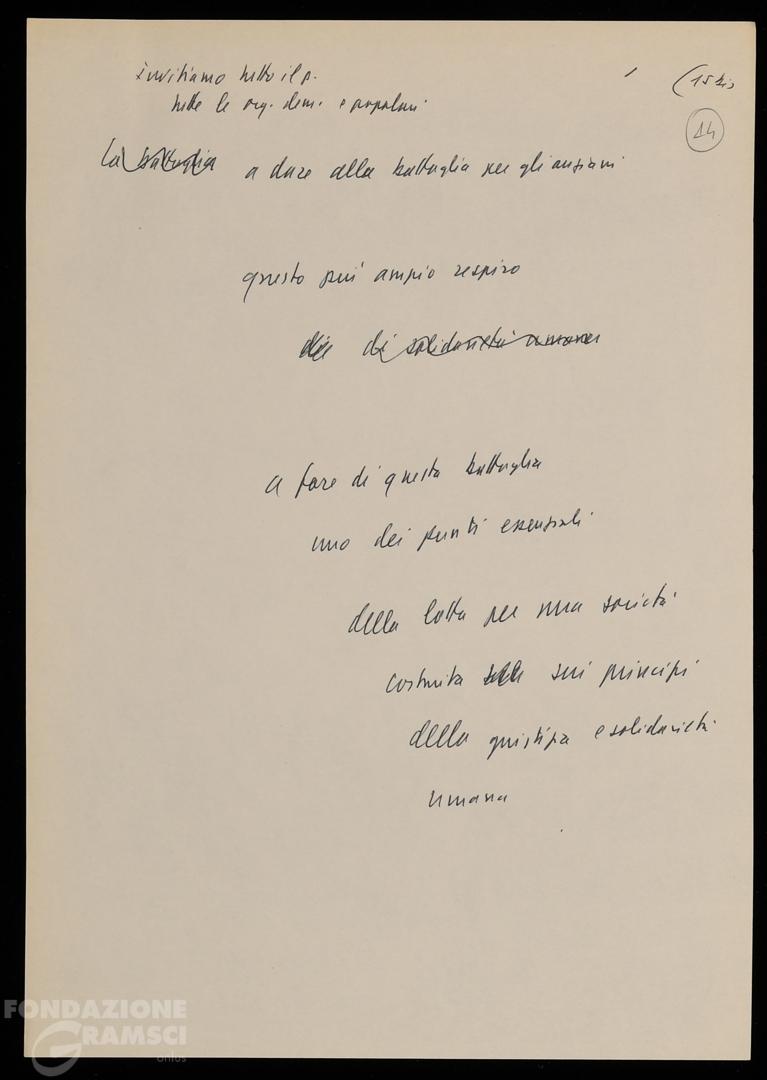 invitiamo tutto il p.
tutte le org. dem. e popolari
(15 bis
14
La battaglia a dare alla battaglia per gli anziani
questo più ampio respiro
di solidarietà umana
a fare di questa battaglia
uno dei punti essenziali
della lotta per una società
costruita sui principi
della giustizia e solidarietà
umana
FONDAZIONE
GRAMSCI
onlus